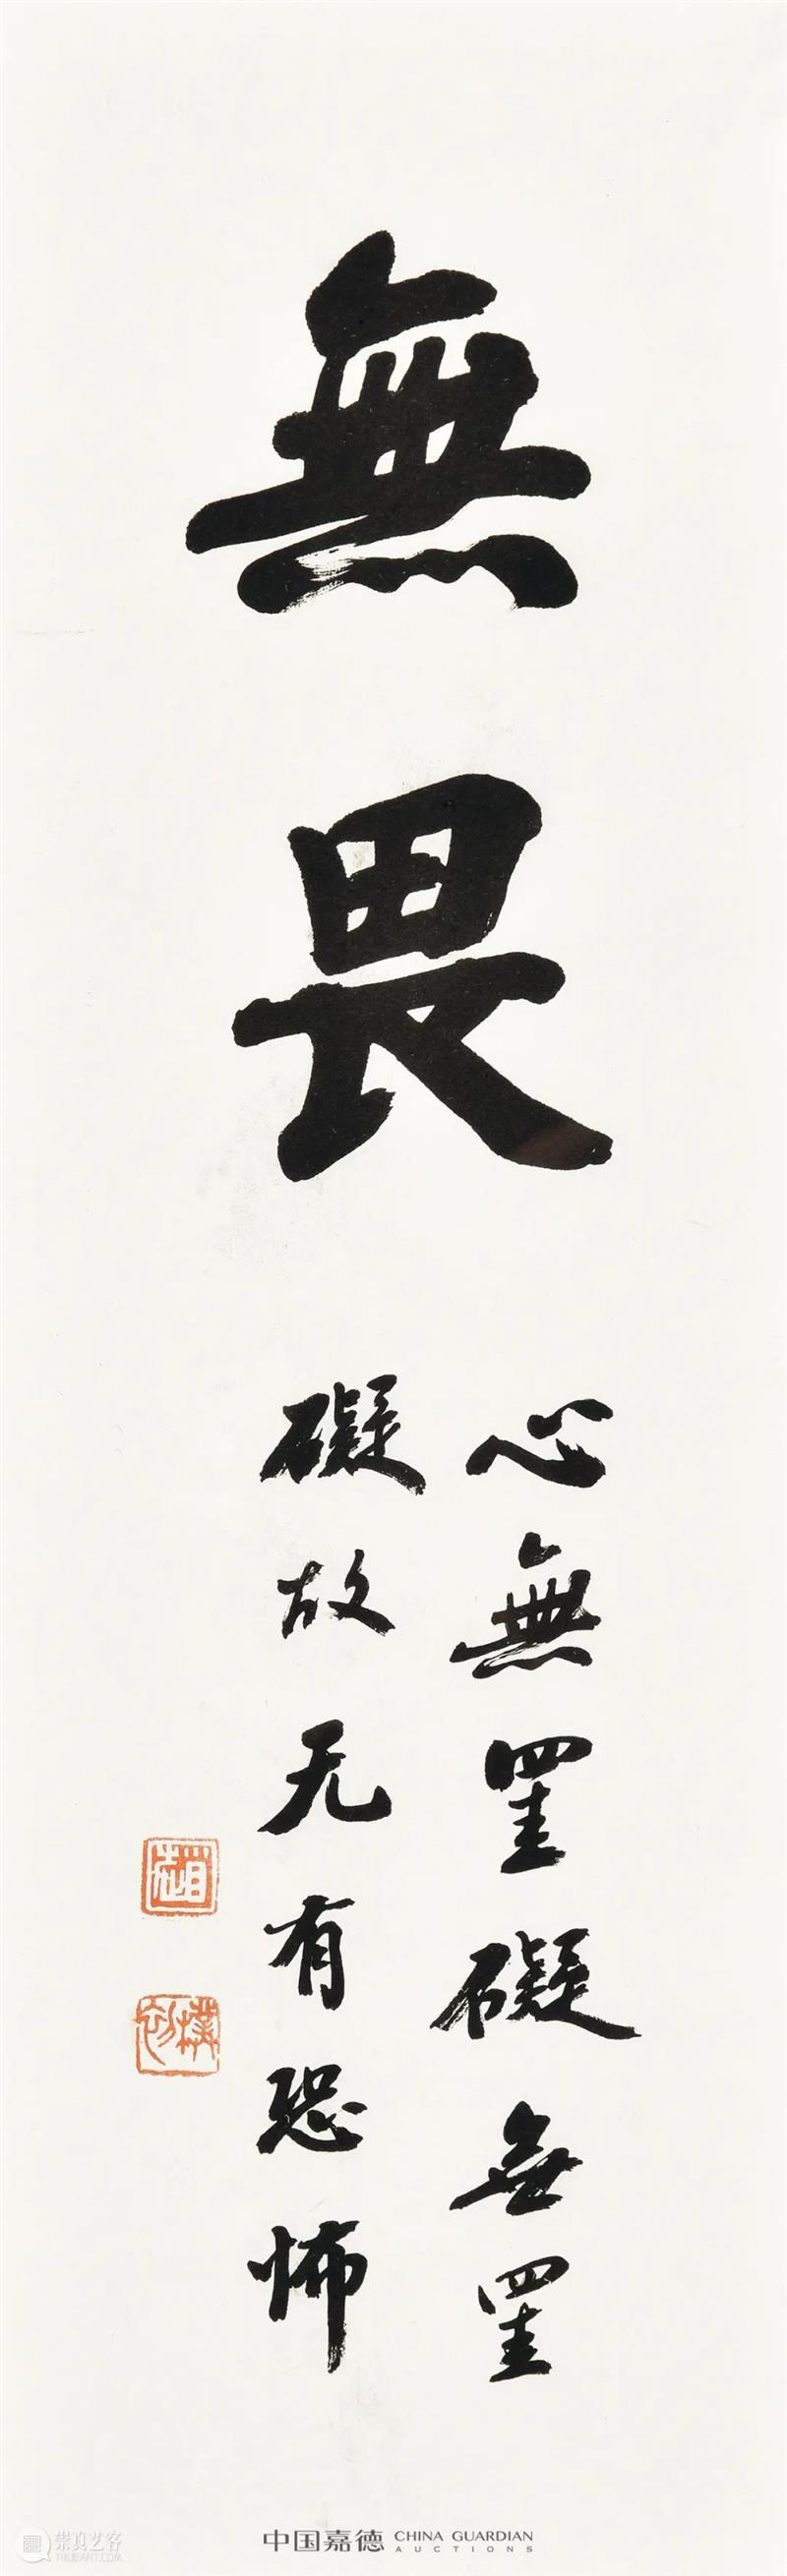 無畏
心無罣礙無罣
礙故无有恐怖
趙
樸初
中国嘉德 CHINA GUARDIAN AUCTIONS
崇真艺客
TRUEART.COM